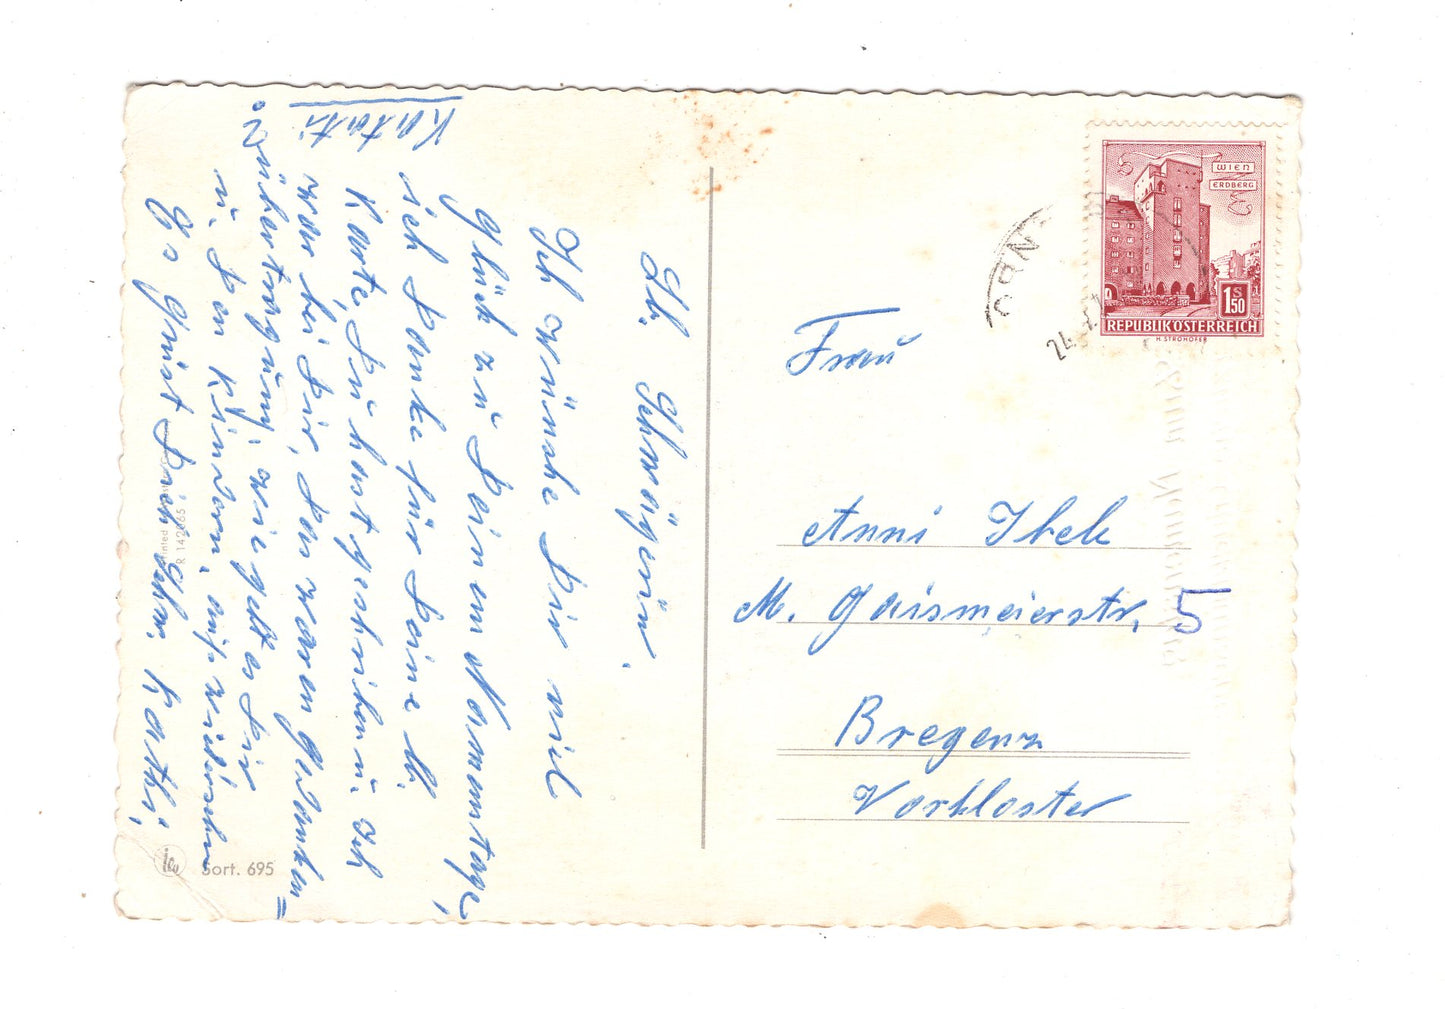 Lb. Schwägerin.
Ich wünsche Dir viel
Glück zu Deinem Namenstage,
ich Danke für Deine lb.
Karte, Du hast geschrieben ich
war bei Dir, das waren Gedanken=
übertragung, wie geht es Dir
u. Den Kindern, auf wiedersehn
Es Grüst Dich
Kathi,
Frau
Anni Ibele
M. Gaismeierstr, 5
Bregenz
Vorkloster
WIEN
ERDBERG
1 S 50
REPUBLIK ÖSTERREICH
H. STROHOFER
ORN
24.
Sort. 695
R 142065